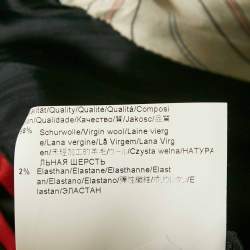 ität/Quality/Qualité/Qualità/Composi
n/Qualidade/Качество/質/Jakość/品質
8% Schurwolle/Virgin wool/Laine vierg
e/Lana vergine/Lã Virgem/Lana Virg
en/未经加工的羊毛/ウール/Czysta wełna/НАТУРА
ЛЬНАЯ ШЕРСТЬ
2% Elasthan/Elastane/Elasthanne/Elast
an/Elastano/Elastano/彈性纖維/ポリウレタン/E
lastan/ЭЛАСТАН